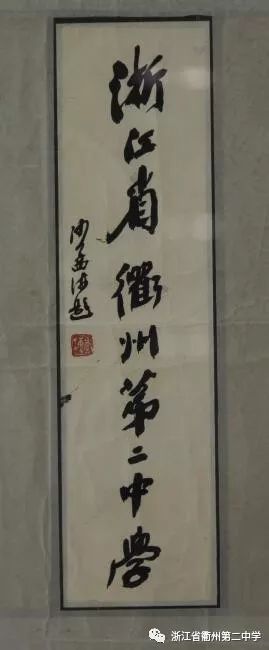 浙江省衢州第二中學
沙孟海題
浙江省衢州第二中学